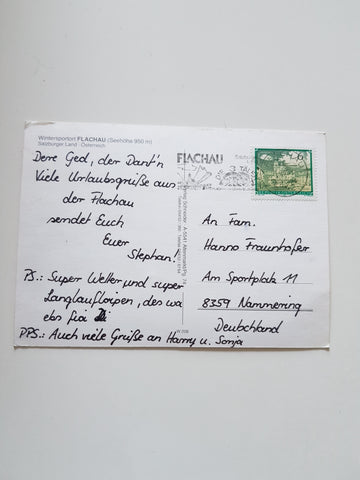 Wintersportort FLACHAU (Seehöhe 950 m)
Salzburger Land · Österreich
Dere Ged, der Dant'n
Viele Urlaubsgrüße aus
der Flachau
sendet Euch
Euer
Stephan!
PS.: Super Wetter und super
Langlaufloipen, des wa
ebs fia Di
PPS.: Auch viele Grüße an Harry u. Sonja
FLACHAU
6
An Fam.
Hanno Fraunhofer
Am Sportplatz 11
8359 Nammering
Deutschland